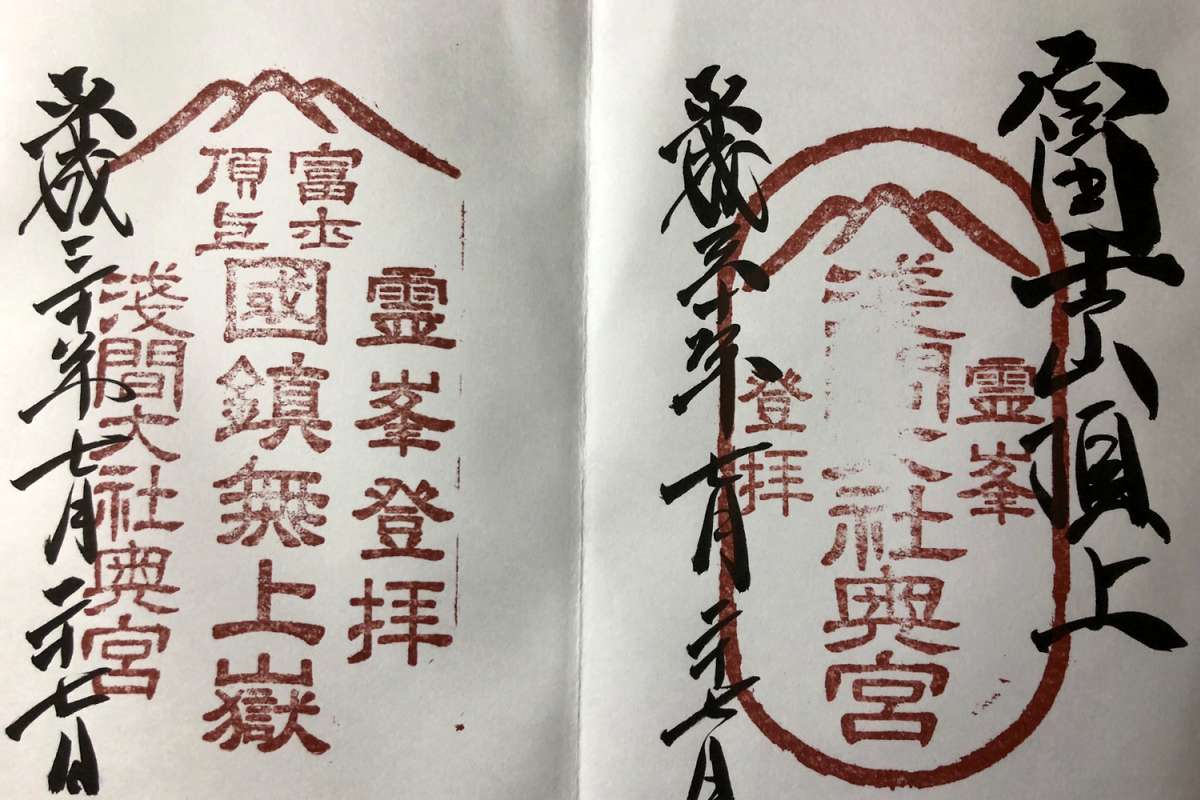 富士山頂上
霊峯
淺間大社奥宮
登拝
平成三十年七月二十七日
霊峯登拝
富士
頂上
國鎮無上嶽
淺間大社奥宮
平成三十年七月二十七日